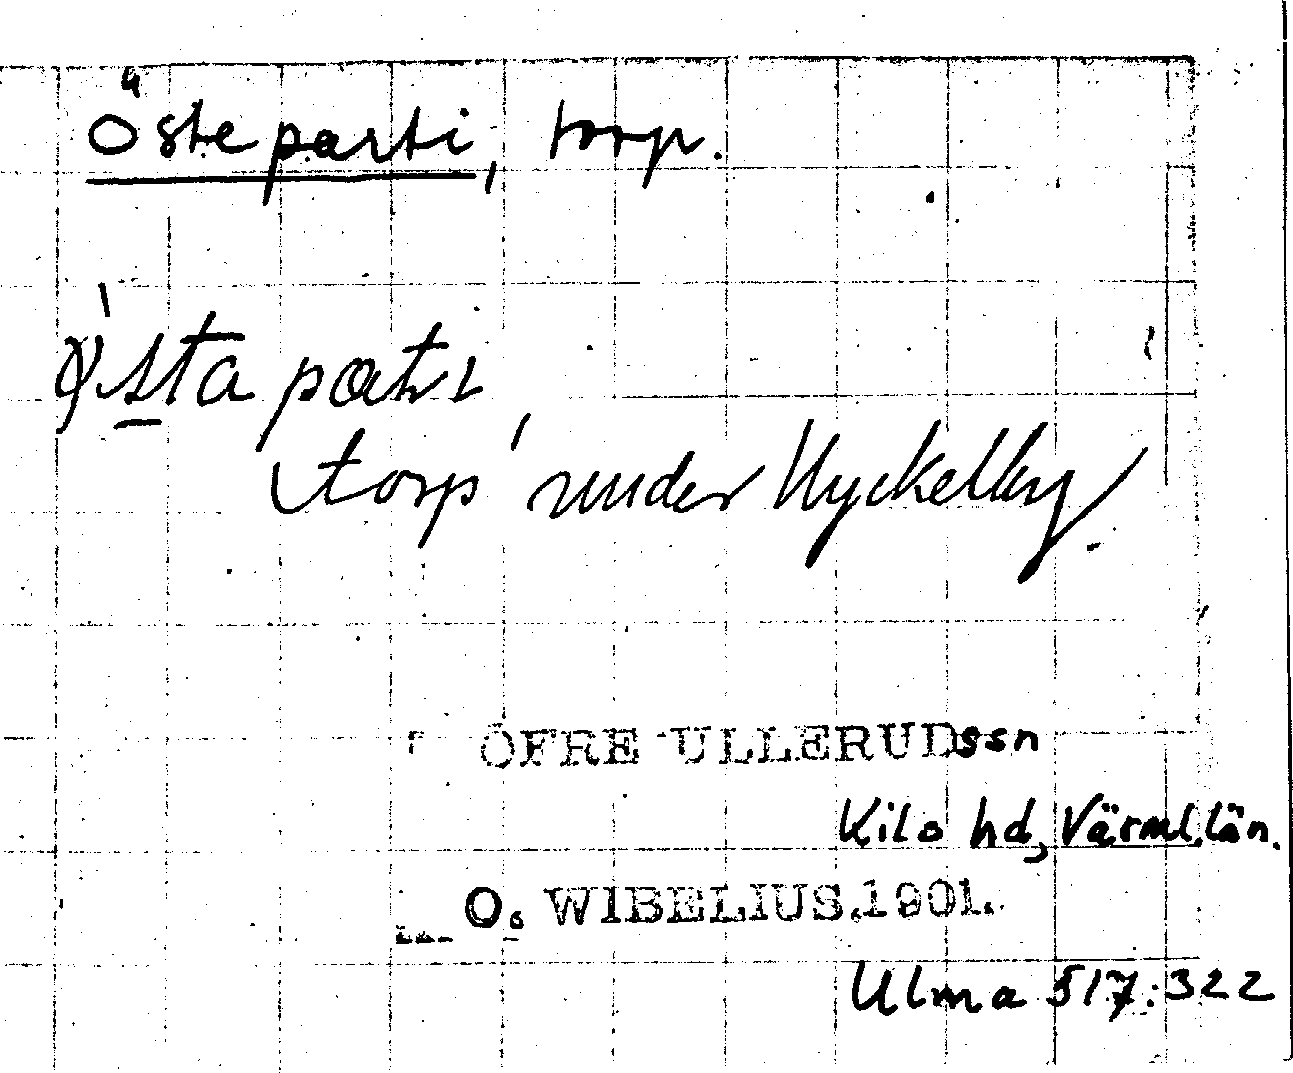 Östeparti, torp.
Østa pati
torp under Nyckelby.
ÖFRE ULLERUDssn
Kils hd, Värml. län.
O. WIBELIUS.1901.
Ulma 517:322